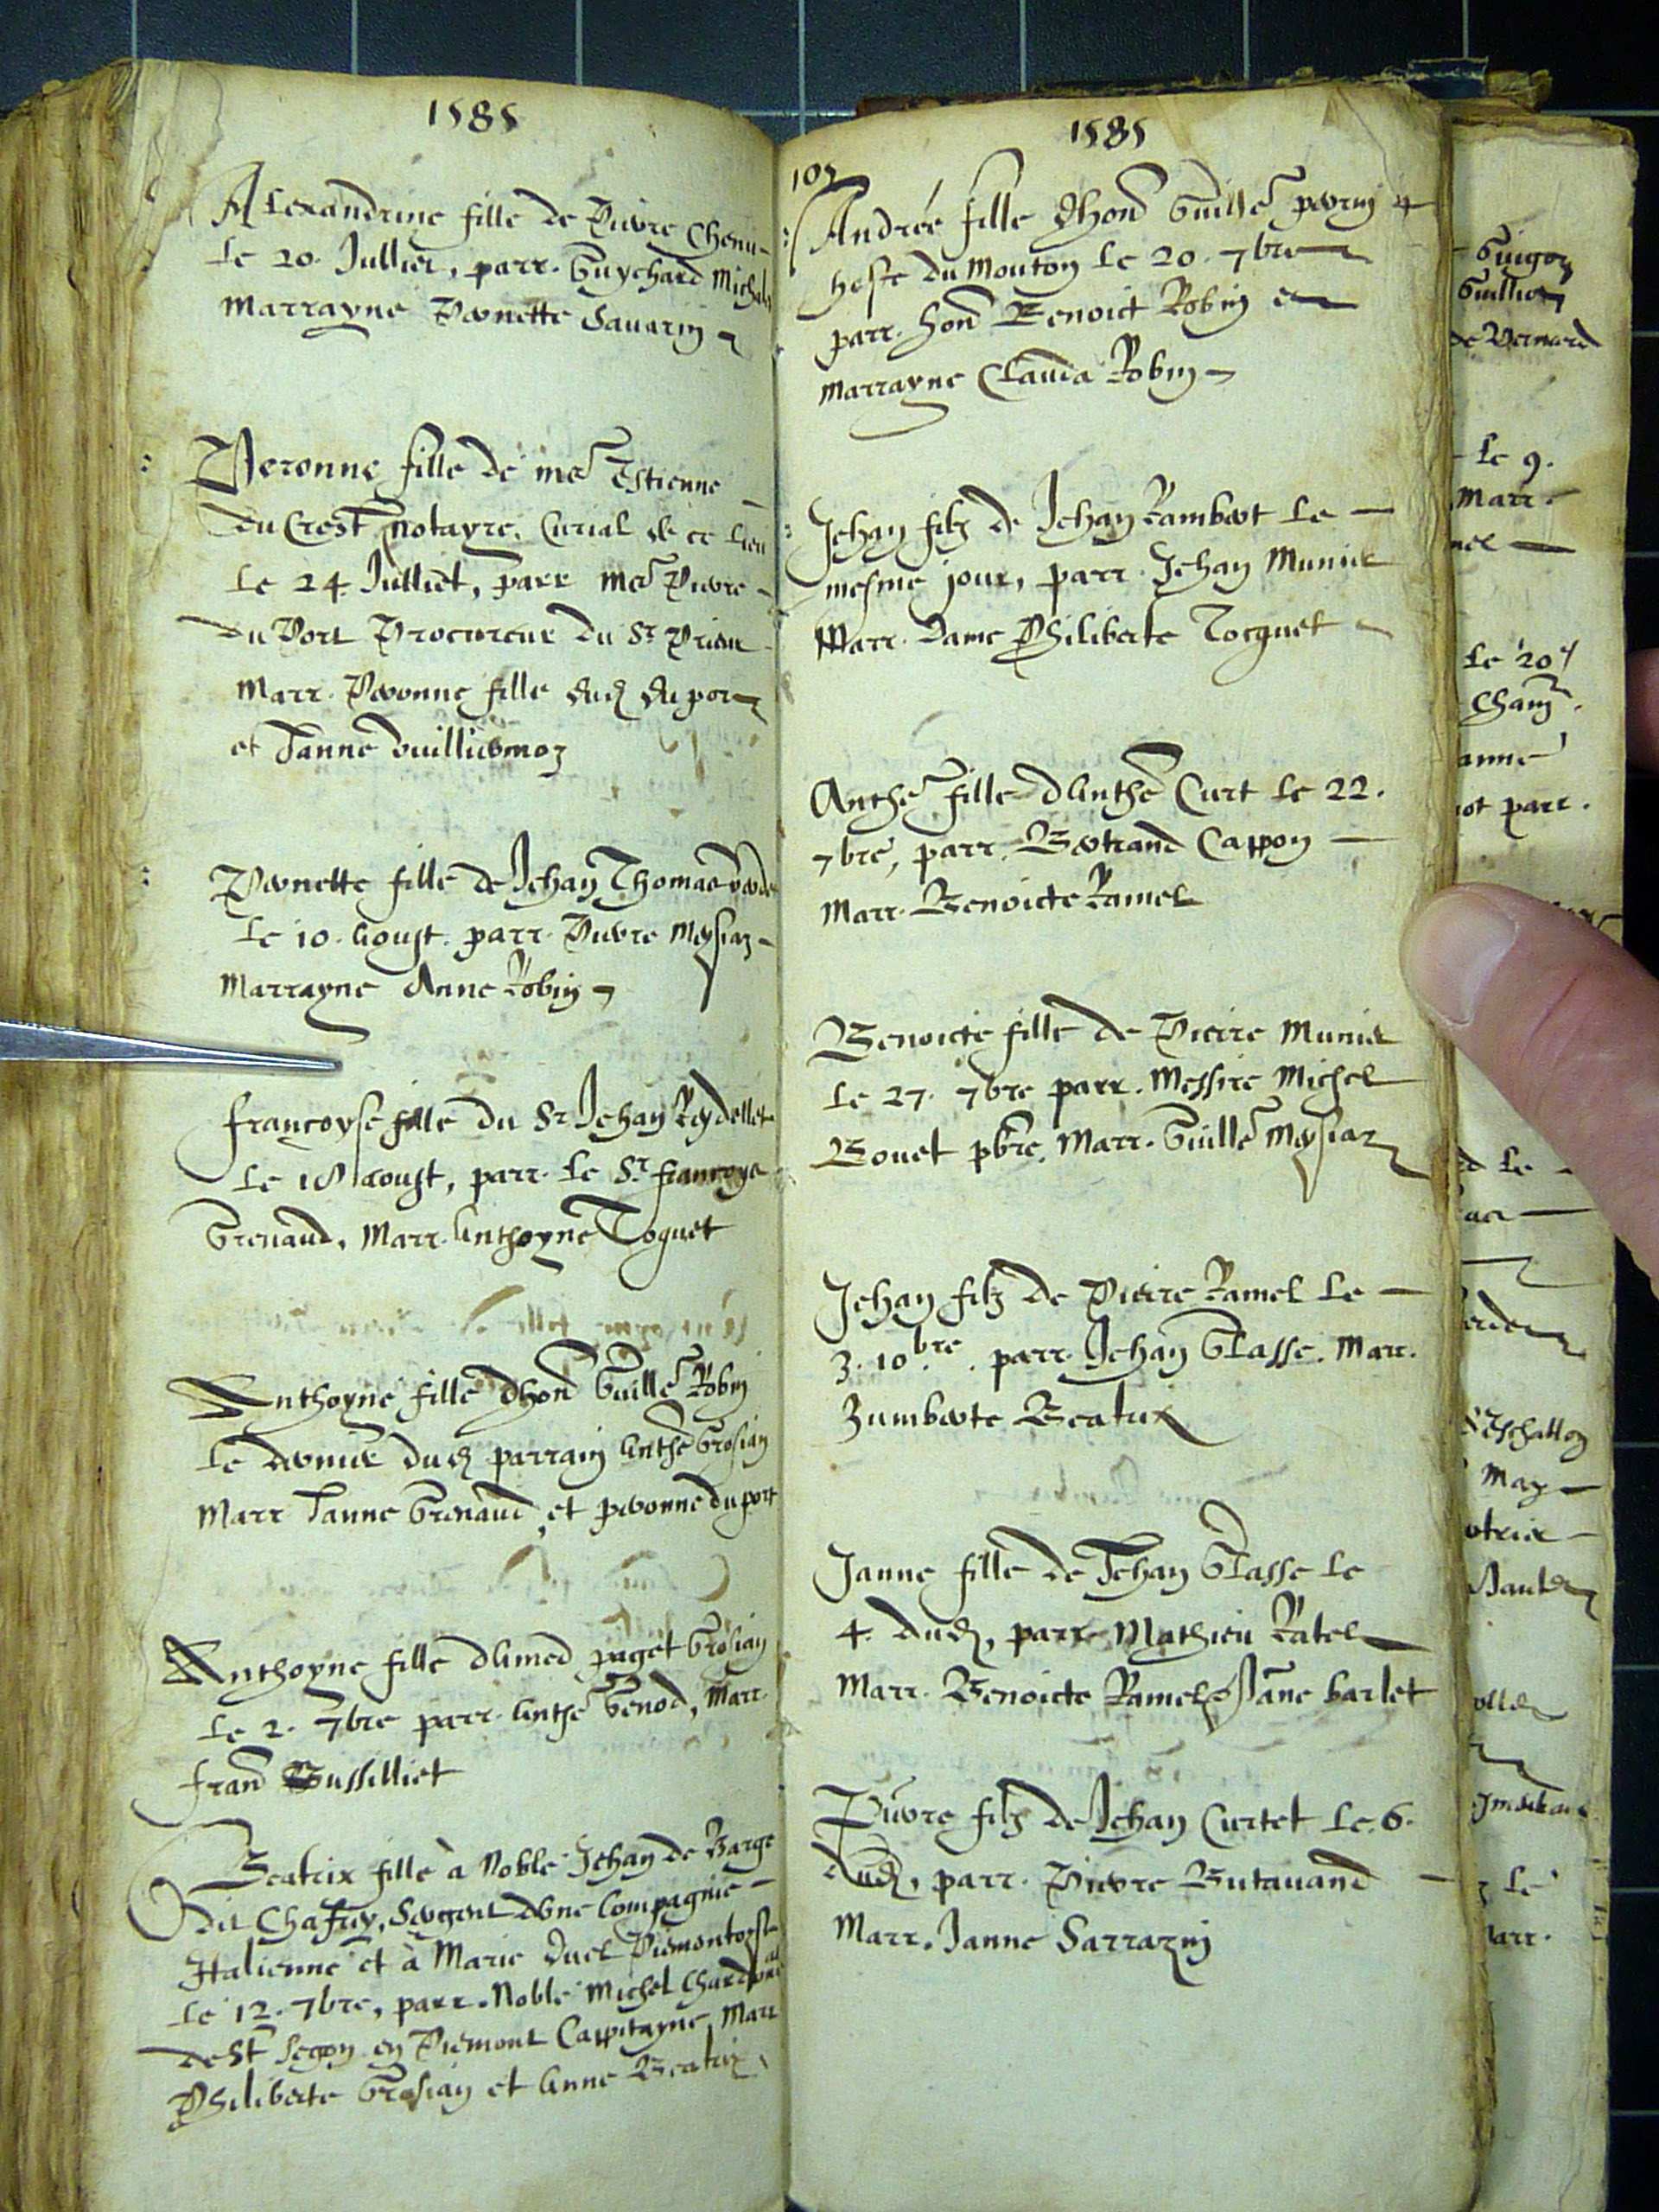 1585
Alexandrine fille de Pierre Chenu
le 20. Jullier, parr. Guychard Michel
Marrayne Pernette Sauarin
Peronne fille de me Estienne
du Crest notayre, Curial de ce lieu
le 24 Julliet, parr me Pierre
du Port Procureur du Sr Prieur
Marr. Peronne fille dud du port
et Janne Vuilliermoz
Pernette fille de Jehan Thomas
le 10. Aoust. parr. Pierre Meysiaz
Marrayne Anne Robin
Françoyse fille du Sr Jehan Reydellet
le 18 Aoust, parr. le Sr Françoys
Grenaud, Marr. Anthoyne Toquet
Anthoyne fille dhon Guille Robin
le dernier dud parrain Anthe Grosian
Marr Janne Grenaud, et peronne du port
Anthoyne fille dAmed paget Grosian
le 2. 7bre parr. Anthe Genod, Marr.
fran Bussilliet
Beatrix fille à Noble Jehan de Barge
dit Chafrey, Sergent dune Compagnie
Italienne et à Marie Duel Piemontoyse
le 12. 7bre, parr. Noble Michel
de St Segon en Piemont Cappitayne, Marr
Philiberte Grosian et Anne Beatrix
1585
107
Andree fille dhon Guille perrin
hoste du Mouton le 20. 7bre
parr. hon Benoict Robin
marrayne Clauda Robin
Jehan filz de Jehan Rambert le
mesme jour, parr. Jehan Munier
Marr. Dame Philiberte Tocquet
Anthe fille dAnthe Curt le 22.
7bre, parr. Bertrand Cappon
Marr. Benoicte Ramel
Benoicte fille de Pierre Munier
le 27. 7bre parr. Messire Michel
Bouet pbre. Marr. Guille Meysiaz
Jehan filz de Pierre Ramel le
3. 10bre. parr. Jehan Glasse. Marr.
Humberte Beatrix
Janne fille de Jehan Glasse le
4. dud, parr Mathieu Ratel
Marr. Benoicte Ramel & Jane barlet
Pierre filz de Jehan Curtet le 6.
dud, parr. Pierre Butauand
Marr. Janne Sarrazin
Guigon
de Bernard
le 9.
Marr.
le 20
anne
parr.
le
May
le
arr.